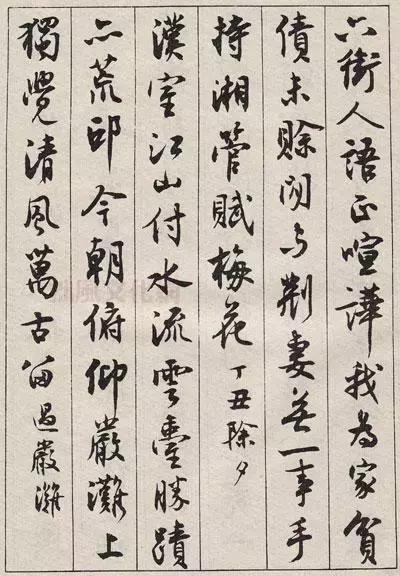 六街人語正喧譁我為家貧
債未賒閒与荆妻無一事手
持湘管賦梅花 丁丑除夕
漢室江山付水流雲臺勝蹟
亦荒邱今朝俯仰嚴灘上
獨覺清風萬古留 過嚴灘